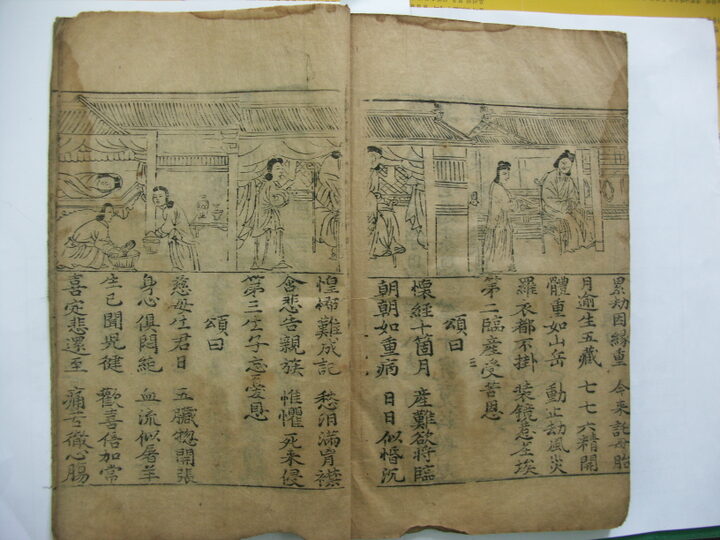 累劫因緣重 今來託母胎
月逾生五藏 七七六精開
體重如山岳 動止劫風災
羅衣都不掛 装鏡惹尘埃
第二臨産受苦恩
頌曰
懷經十箇月 産難欲將臨
朝朝如重病 日日似惛沉
惶怖難成記 愁泪滿胷襟
含悲告親族 惟懼死来侵
第三生子忘憂恩
頌曰
慈母生君日 五臓揔開張
身心俱悶絶 血流似屠羊
生已聞兒徤 歡喜倍加常
喜定悲還至 痛苦徹心膓